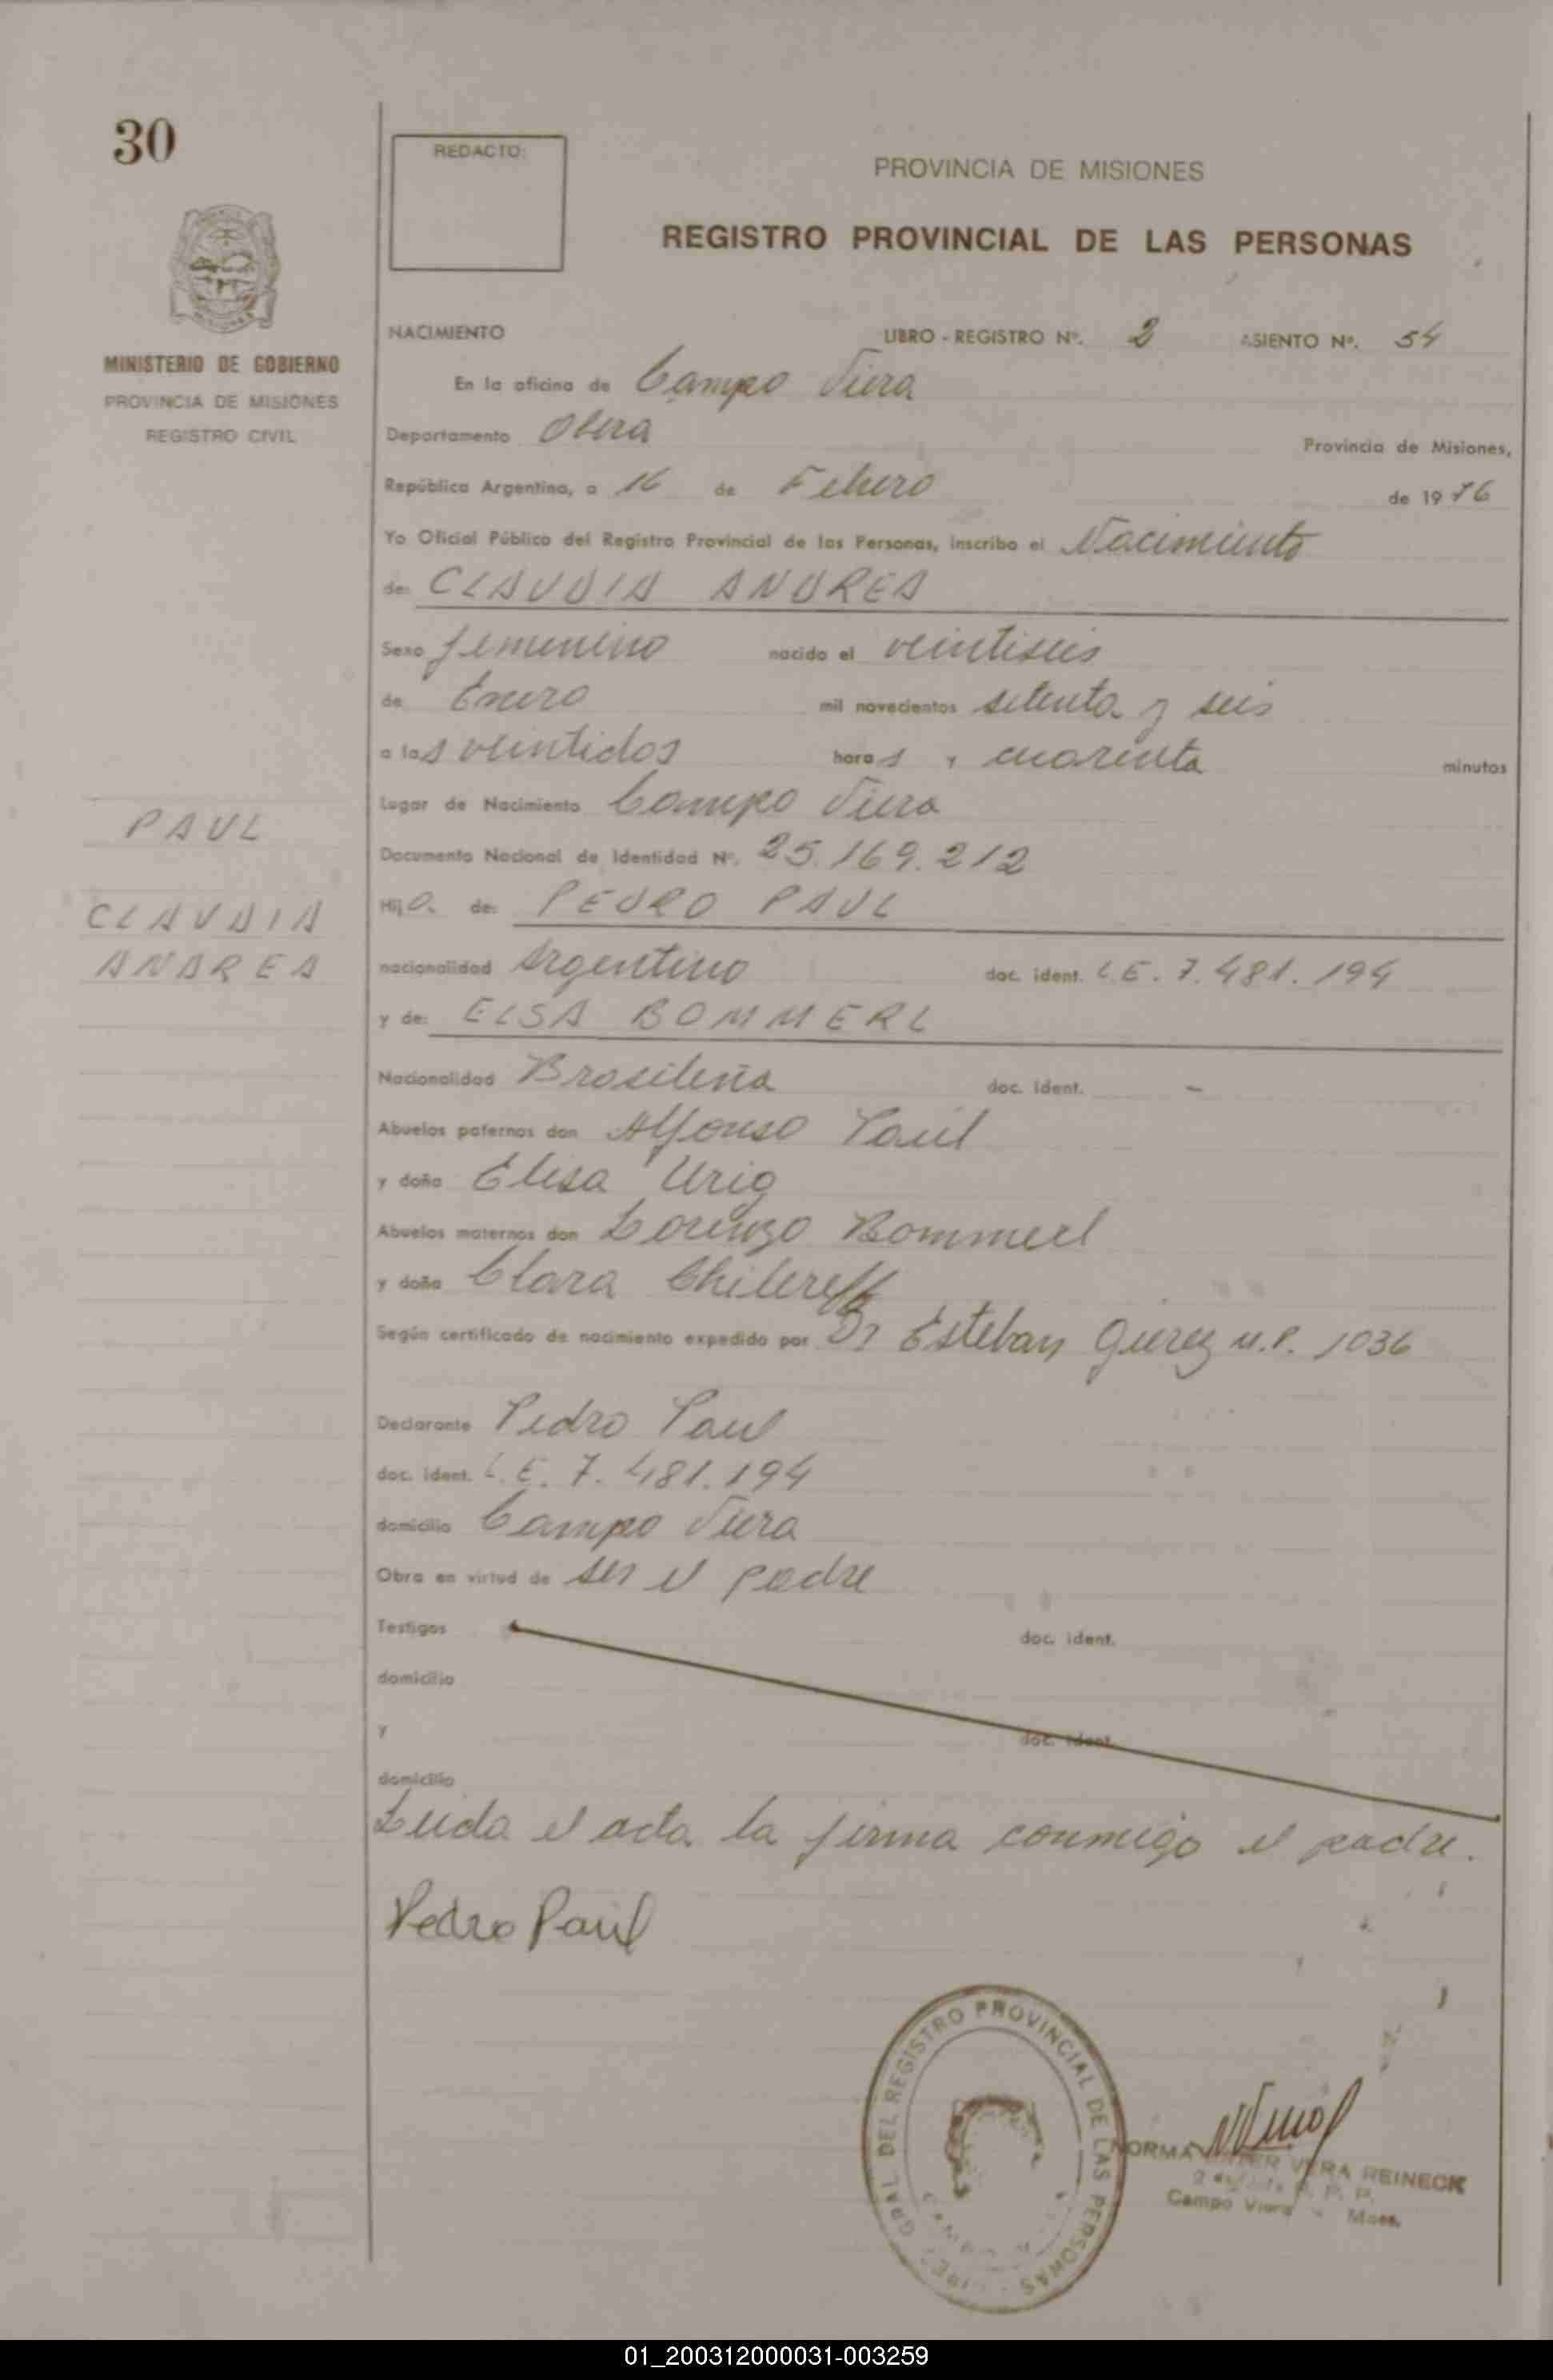 30
REDACTO:
PROVINCIA DE MISIONES
REGISTRO PROVINCIAL DE LAS PERSONAS
MINISTERIO DE GOBIERNO
PROVINCIA DE MISIONES
REGISTRO CIVIL
NACIMIENTO LIBRO - REGISTRO Nº. 2 ASIENTO Nº. 54
En la oficina de Campo Viera
Departamento Obera Provincia de Misiones,
República Argentina, a 16 de Febrero de 1976
Yo Oficial Público del Registro Provincial de las Personas, inscribo el Nacimiento
de: CLAUDIA ANDREA
Sexo femenino nacido el veintiseis
de Enero mil novecientos setenta y seis
a las veintidos horas y cuarenta minutos
Lugar de Nacimiento Campo Viera
PAUL
Documento Nacional de Identidad Nº. 25.169.212
Hija de: PEDRO PAUL
CLAUDIA
ANDREA
nacionalidad Argentino doc. ident. L.E. 7.481.194
y de: ELSA BOMMERL
Nacionalidad Brasileña doc. ident. -
Abuelos paternos don Alfonso Paul
y doña Elisa Urig
Abuelos maternos don Lorenzo Bommerl
y doña Clara
Según certificado de nacimiento expedido por Dr Esteban M.P. 1036
Declarante Pedro Paul
doc. ident. L.E. 7.481.194
domicilio Campo Viera
Obra en virtud de ser el padre
Testigos doc. ident.
domicilio
y doc. ident.
domicilio
Leida el acta la firma conmigo el padre.
Pedro Paul
GRAL DEL REGISTRO PROVINCIAL DE LAS PERSONAS
NORMA VERA REINECK
Campo Viera - Mnes.
01_200312000031-003259